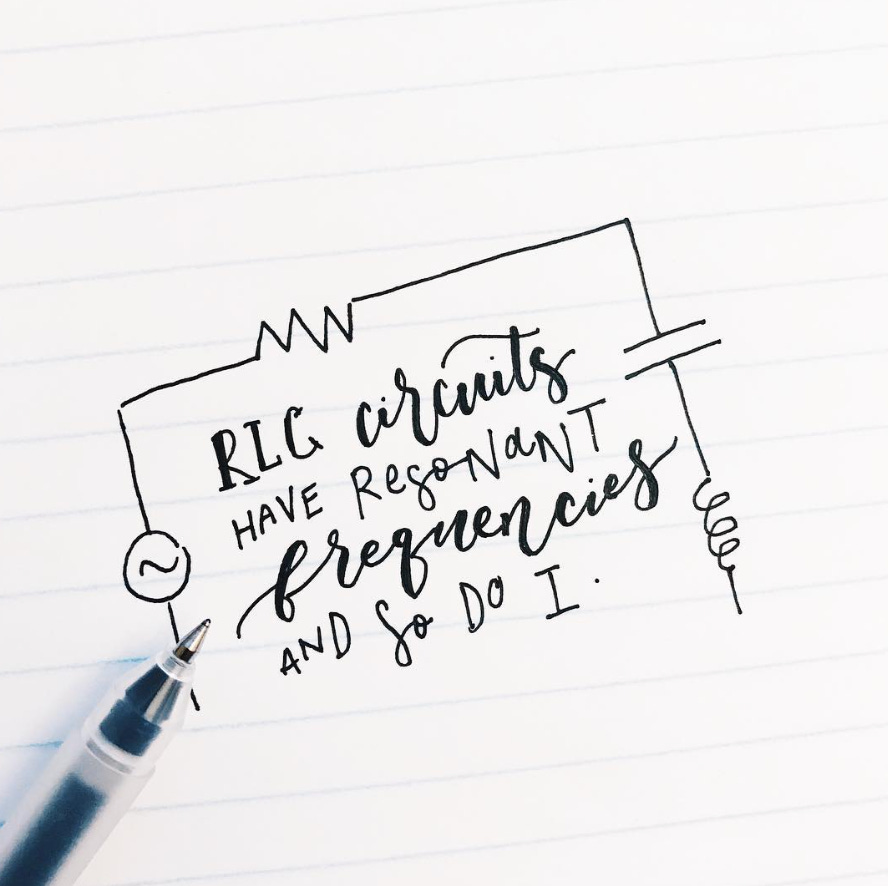 RLC circuits
HAVE ResoNaNT
frequencies
AND So DO I.